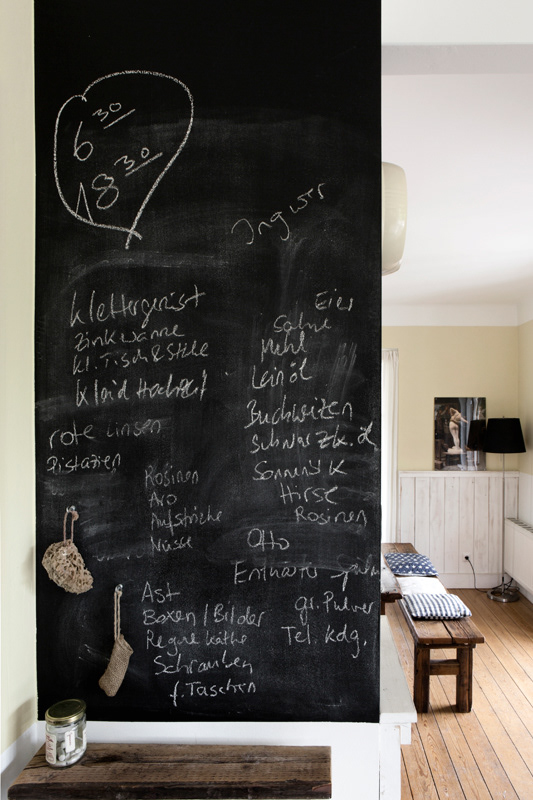 6 30
18 30
Ingwer
Klettergerüst
Zinkwanne
kl. Tisch & Stühle
Kleid Hochzeit
rote Linsen
Pistazien
Rosinen
Aro
Aufstriche
Nüsse
Ast
Boxen / Bilder
Regine Käthe
Schrauben
f. Taschen
Eier
Sahne
Mehl
Leinöl
Buchweizen
Schwarzk. öl
Sonnenbl K
Hirse
Rosinen
Otto
Enthärter
gr. Pulver
Tel. Kdg.